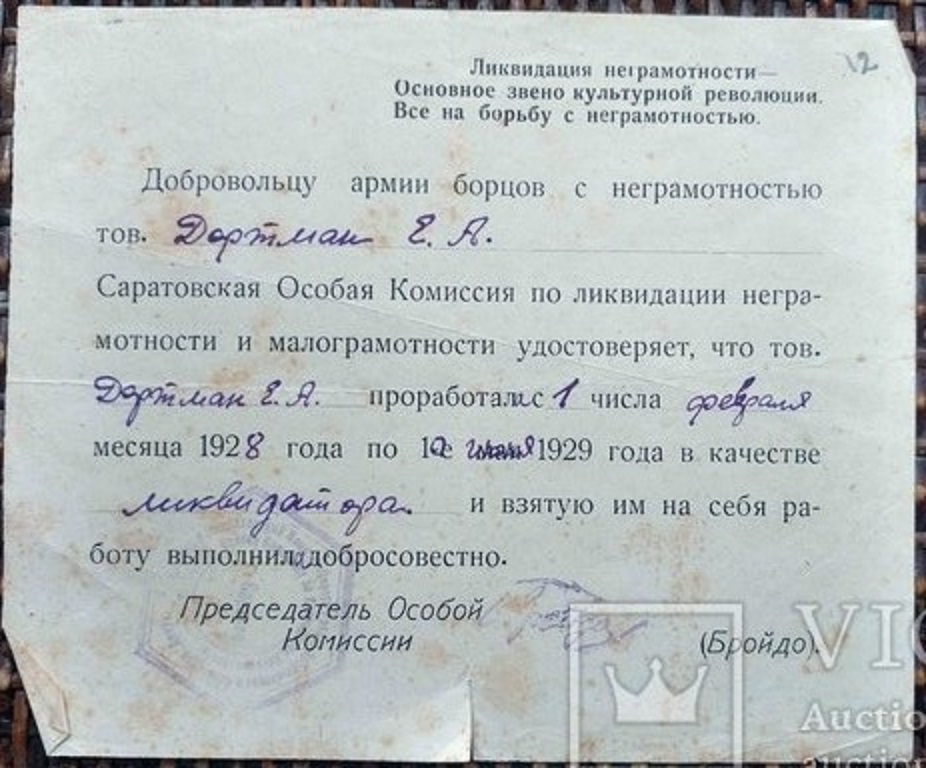 12
Ликвидация неграмотности—
Основное звено культурной революции.
Все на борьбу с неграмотностью.
Добровольцу армии борцов с неграмотностью
тов. Дортман Е. А.
Саратовская Особая Комиссия по ликвидации негра-
мотности и малограмотности удостоверяет, что тов.
Дортман Е. А. проработала с 1 числа февраля
месяца 1928 года по 1929 года в качестве
ликвидатора и взятую им на себя ра-
боту выполнила добросовестно.
Председатель Особой
Комиссии (Бройдо).
VIO
Auctio
auction